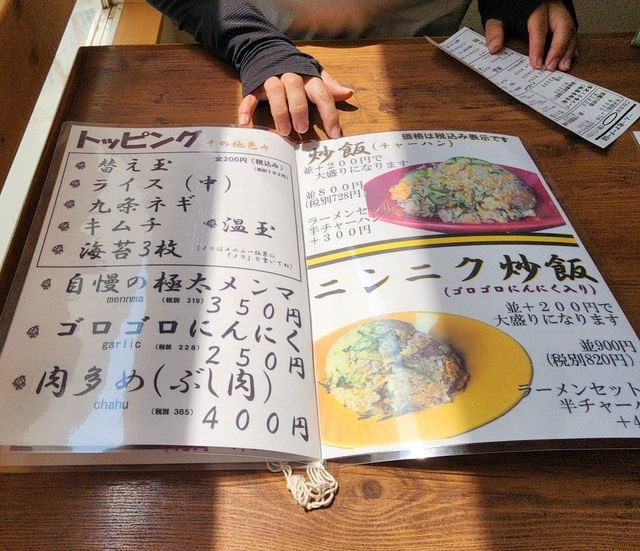 トッピング その他色々
替え玉 全200円(税込み)
(税別182円)
ライス(中)
九条ネギ
キムチ 温玉
海苔3枚 (ノリはメニュー伝票に
「ノリ」と書いてね)
自慢の極太メンマ
menma (税別 319) 350円
ゴロゴロにんにく
garlic (税別 228) 250円
肉多め(ぶし肉)
chahu (税別 365) 400円
価格は税込み表示です
炒飯(チャーハン)
並+200円で
大盛りになります
並800円
(税別728円)
ラーメンセット
半チャーハ
+300円
ニンニク炒飯
(ゴロゴロにんにく入り)
並+200円で
大盛りになります
並900円
(税別820円)
ラーメンセット
半チャーハ
+4